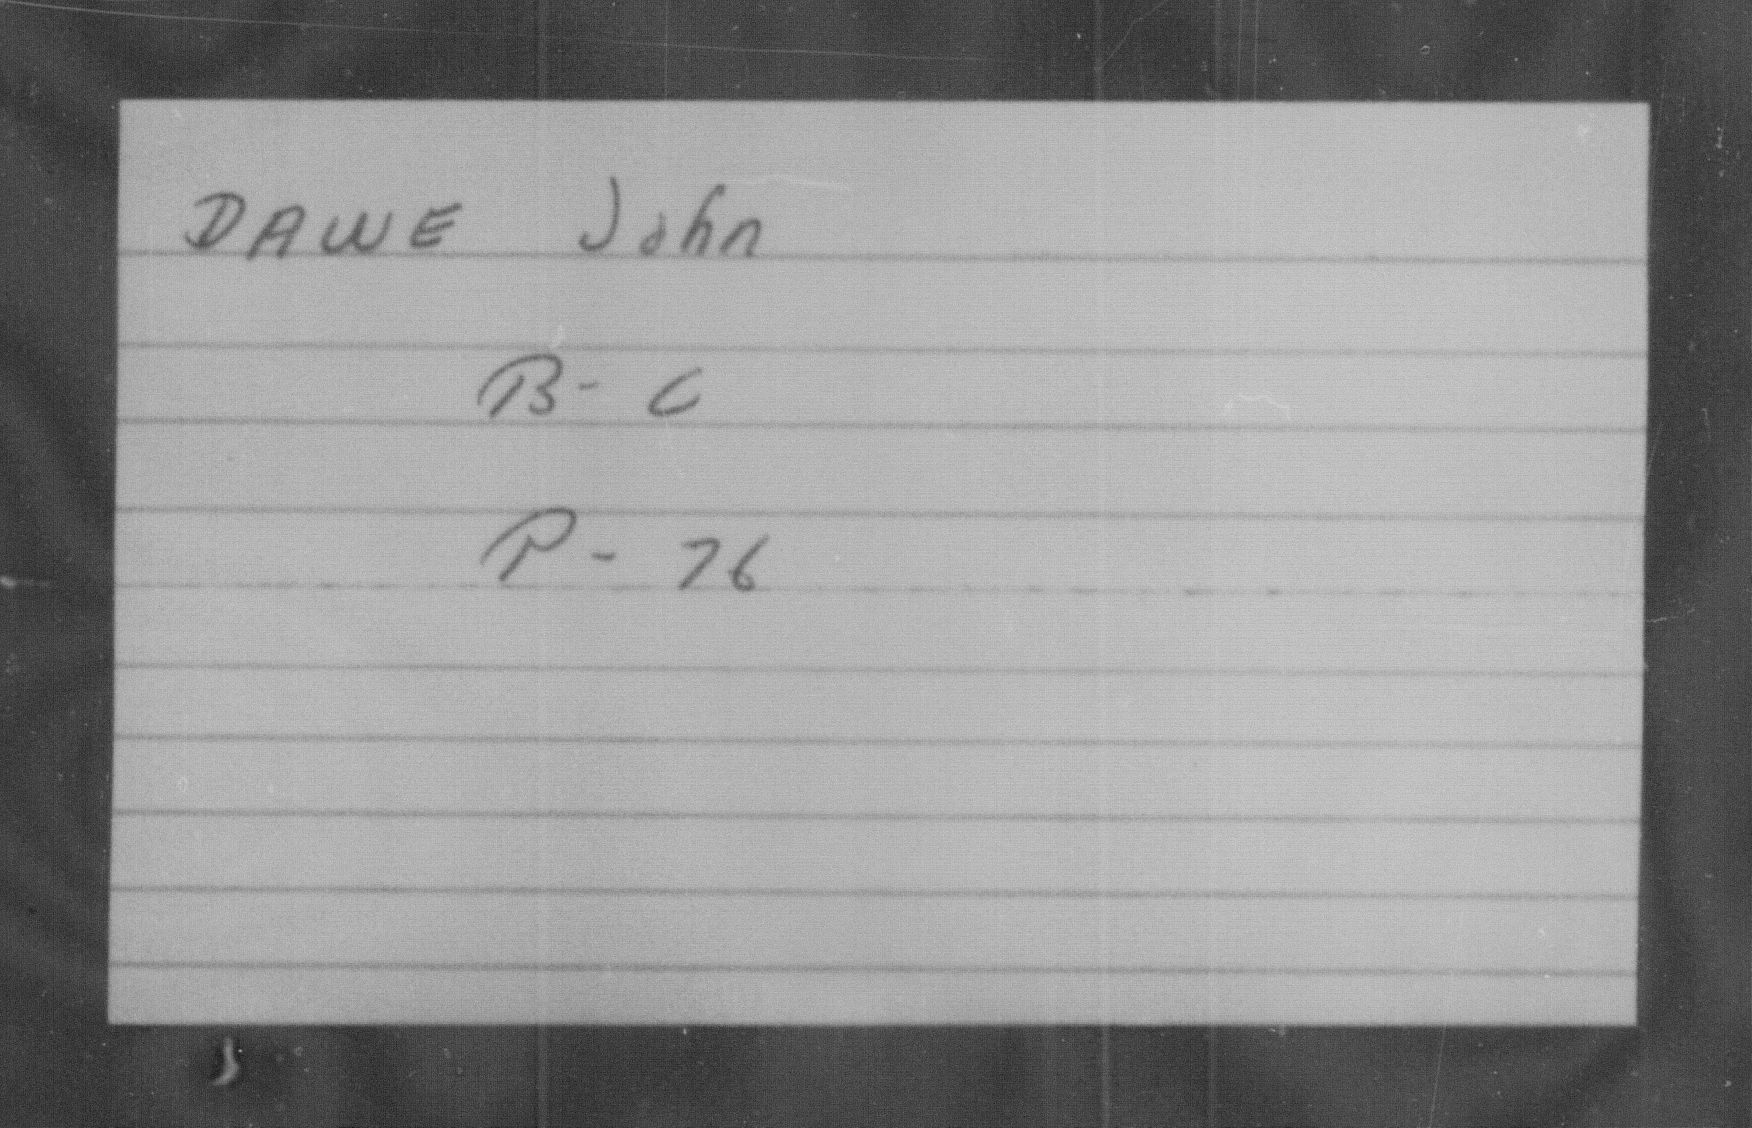 DAWE John
B- C
P- 76